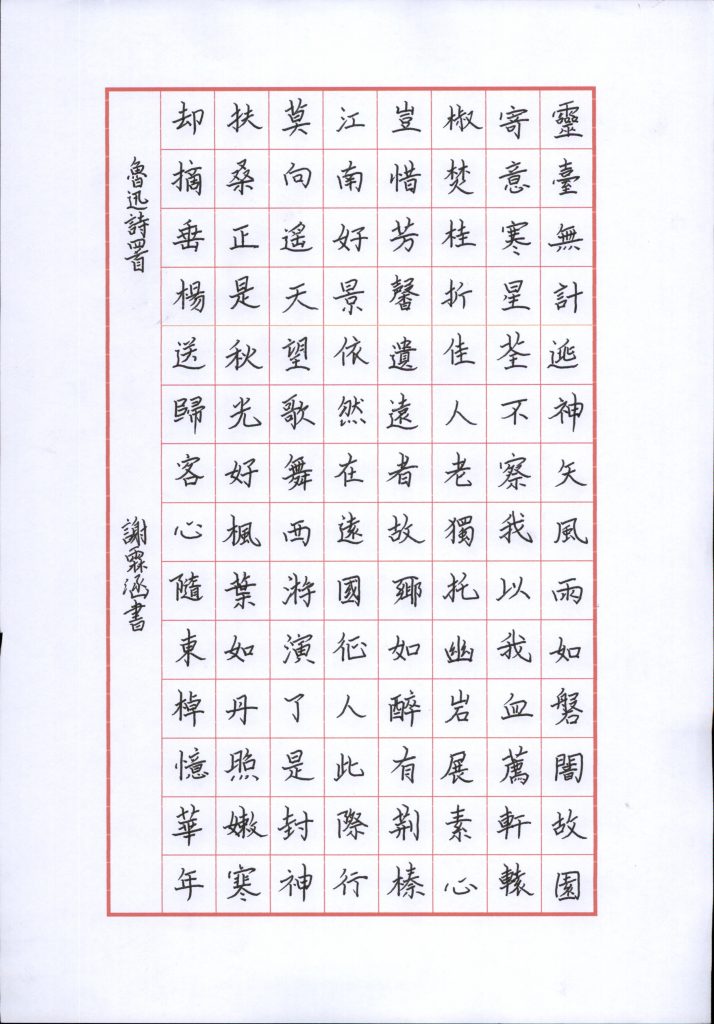 靈臺無計逃神矢風雨如磐闇故園
寄意寒星荃不察我以我血薦軒轅
椒焚桂折佳人老獨托幽岩展素心
豈惜芳馨遺遠者故鄉如醉有荊榛
江南好景依然在遠國征人此際行
莫向遙天望歌舞西游演了是封神
扶桑正是秋光好楓葉如丹照嫩寒
却摘垂楊送歸客心隨東棹憶華年
魯迅詩四首 謝霖涵書